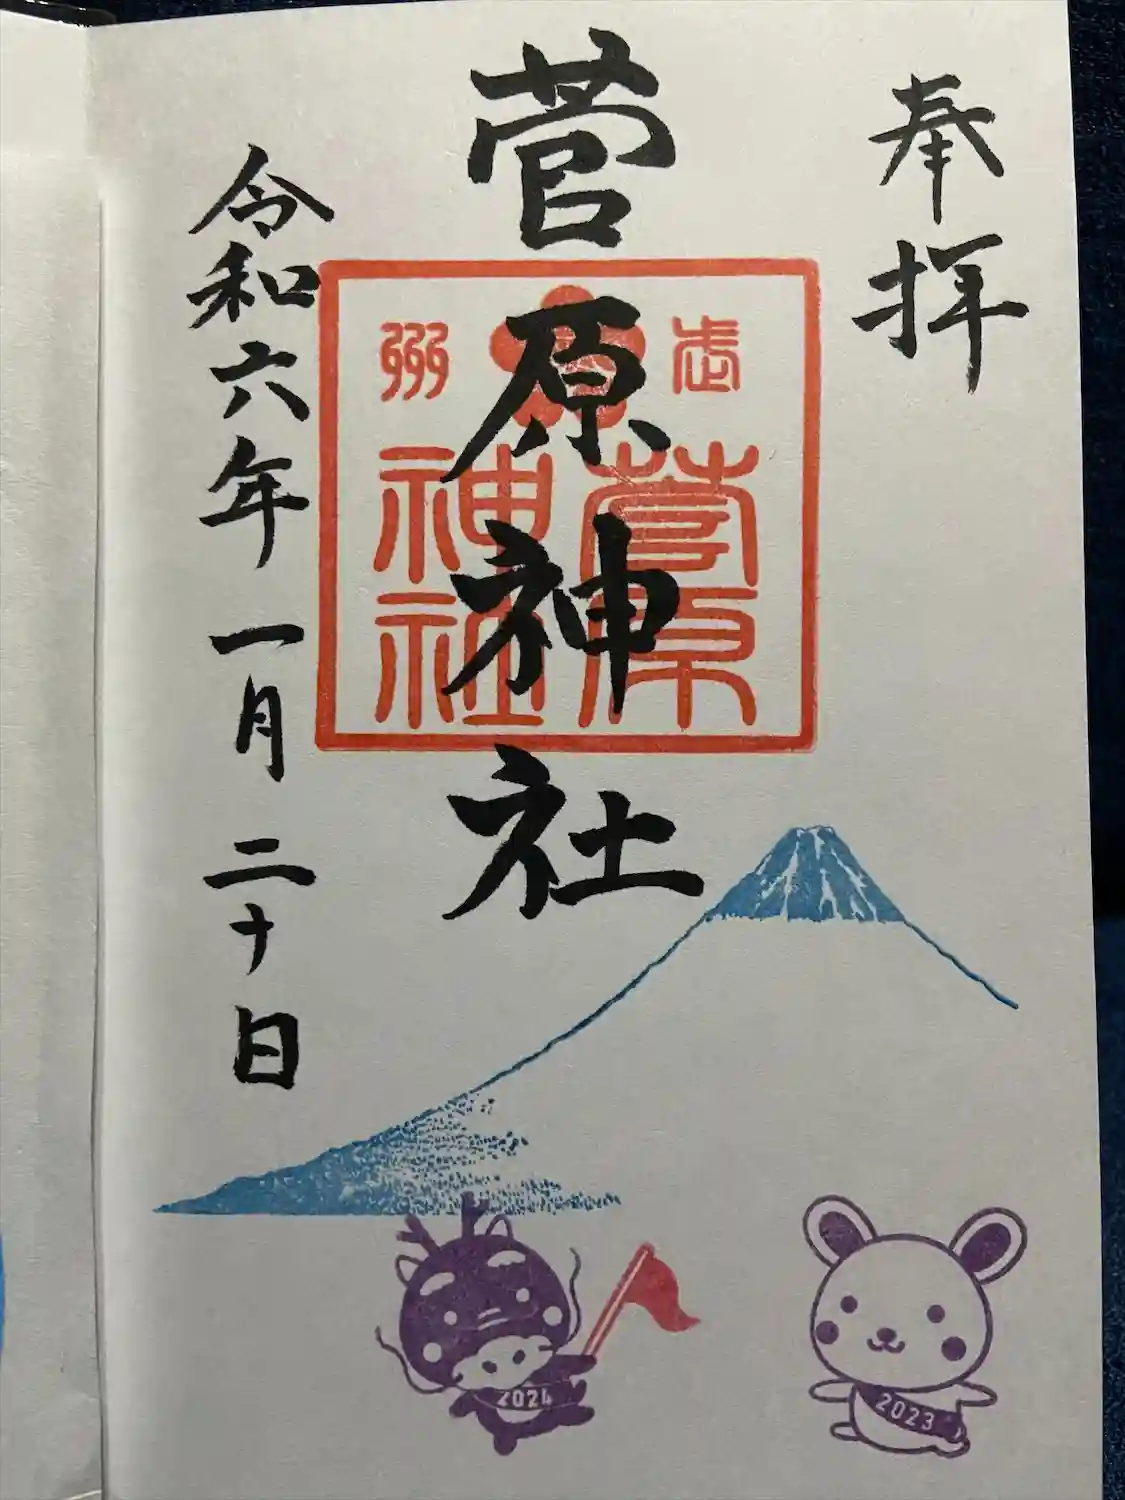 奉拝
菅原神社
武州
菅原
神社
令和六年一月二十日
2024
2023